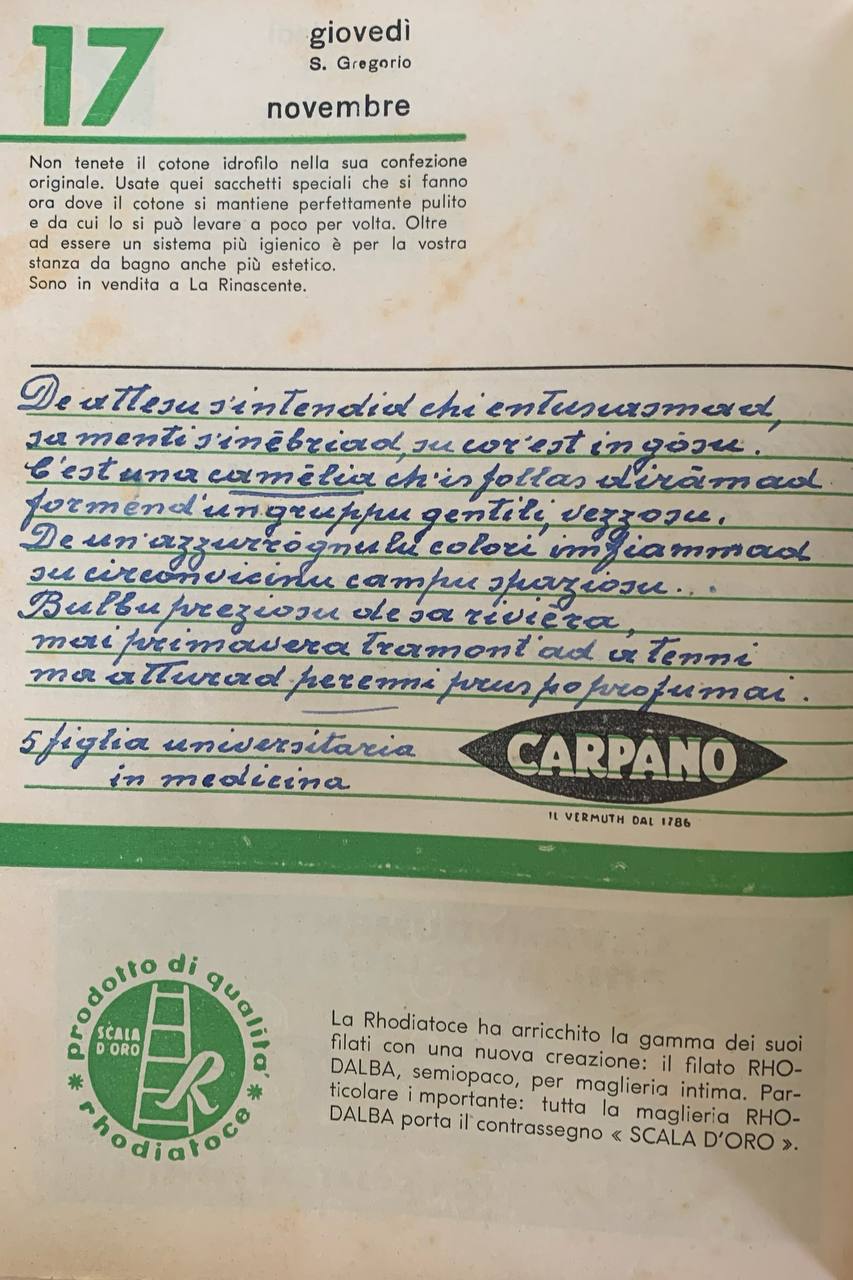 17
giovedì
S. Gregorio
novembre
Non tenete il cotone idrofilo nella sua confezione
originale. Usate quei sacchetti speciali che si fanno
ora dove il cotone si mantiene perfettamente pulito
e da cui lo si può levare a poco per volta. Oltre
ad essere un sistema più igienico è per la vostra
stanza da bagno anche più estetico.
Sono in vendita a La Rinascente.
De attesu s'intendid chi entusiasmad,
sa menti s'inēbriad, su cor'est in gosu.
C'est una camēlia ch'is follas dirāmad
formend'un gruppu gentili, vezzosu.
De un'azzurrōgnulu colori imfiammad
su circonvicinu campu spaziosu...
Bulbu preziosu de sa riviēra,
mai primavera tramont'ad a tenni
ma atturad perenni prus po profumai.
5 figlia universitaria
in medicina
CARPANO
IL VERMUTH DAL 1786
prodotto di qualità
SCALA
D'ORO
R
* rhodiatoce *
La Rhodiatoce ha arricchito la gamma dei suoi
filati con una nuova creazione: il filato RHO-
DALBA, semiopaco, per maglieria intima. Par-
ticolare i mportante: tutta la maglieria RHO-
DALBA porta il contrassegno « SCALA D'ORO ».